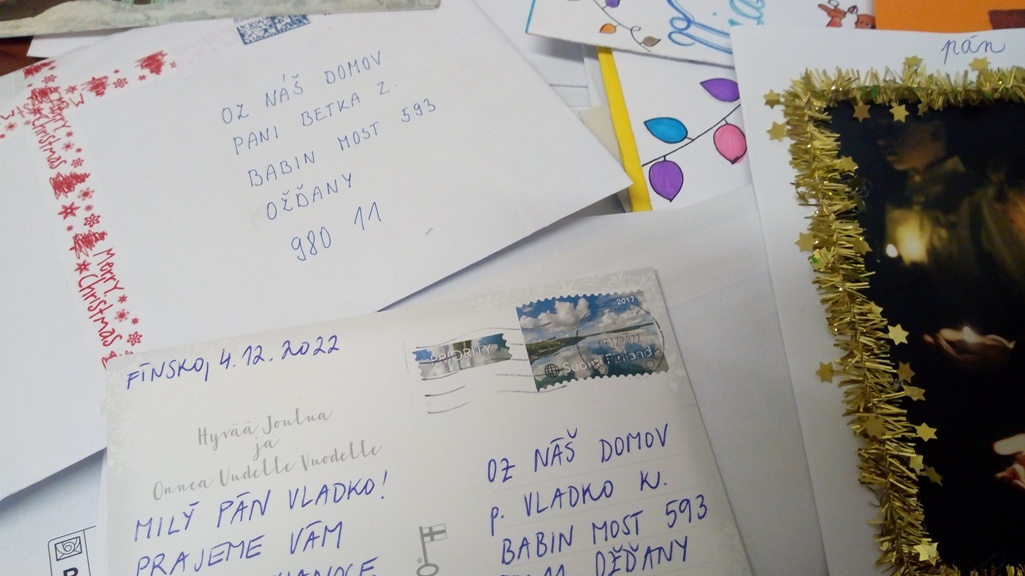 OZ NÁŠ DOMOV
PANI BETKA Z.
BABIN MOST 593
OŽĎANY
980 11
Merry
Christmas
Merry
Christmas
pán
FÍNSKO, 4.12.2022
PRIORITY
2017
Suomi Finland
Hyvää Joulua
ja
Onnea Uudelle Vuodelle
MILÝ PÁN VLADKO!
PRAJEME VÁM
OZ NÁŠ DOMOV
p. VLADKO K.
BABIN MOST 593
OŽĎANY